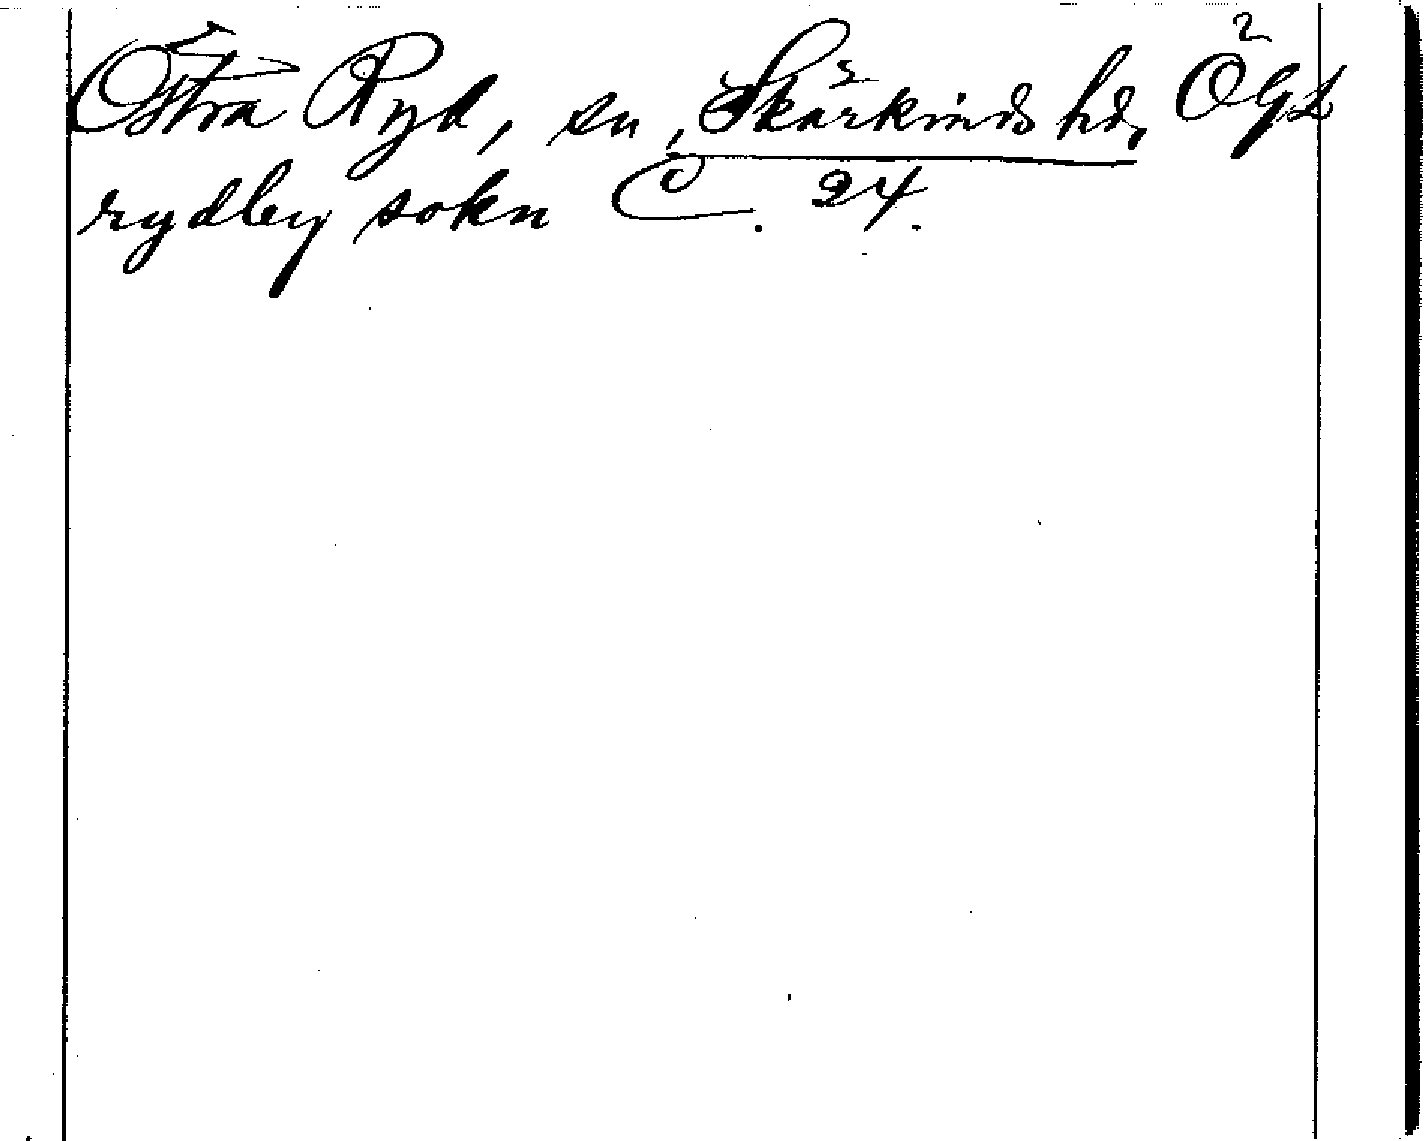 Östra Ryd, sn, Skärkinds hd, Ögl
rydby sokn C. 24.